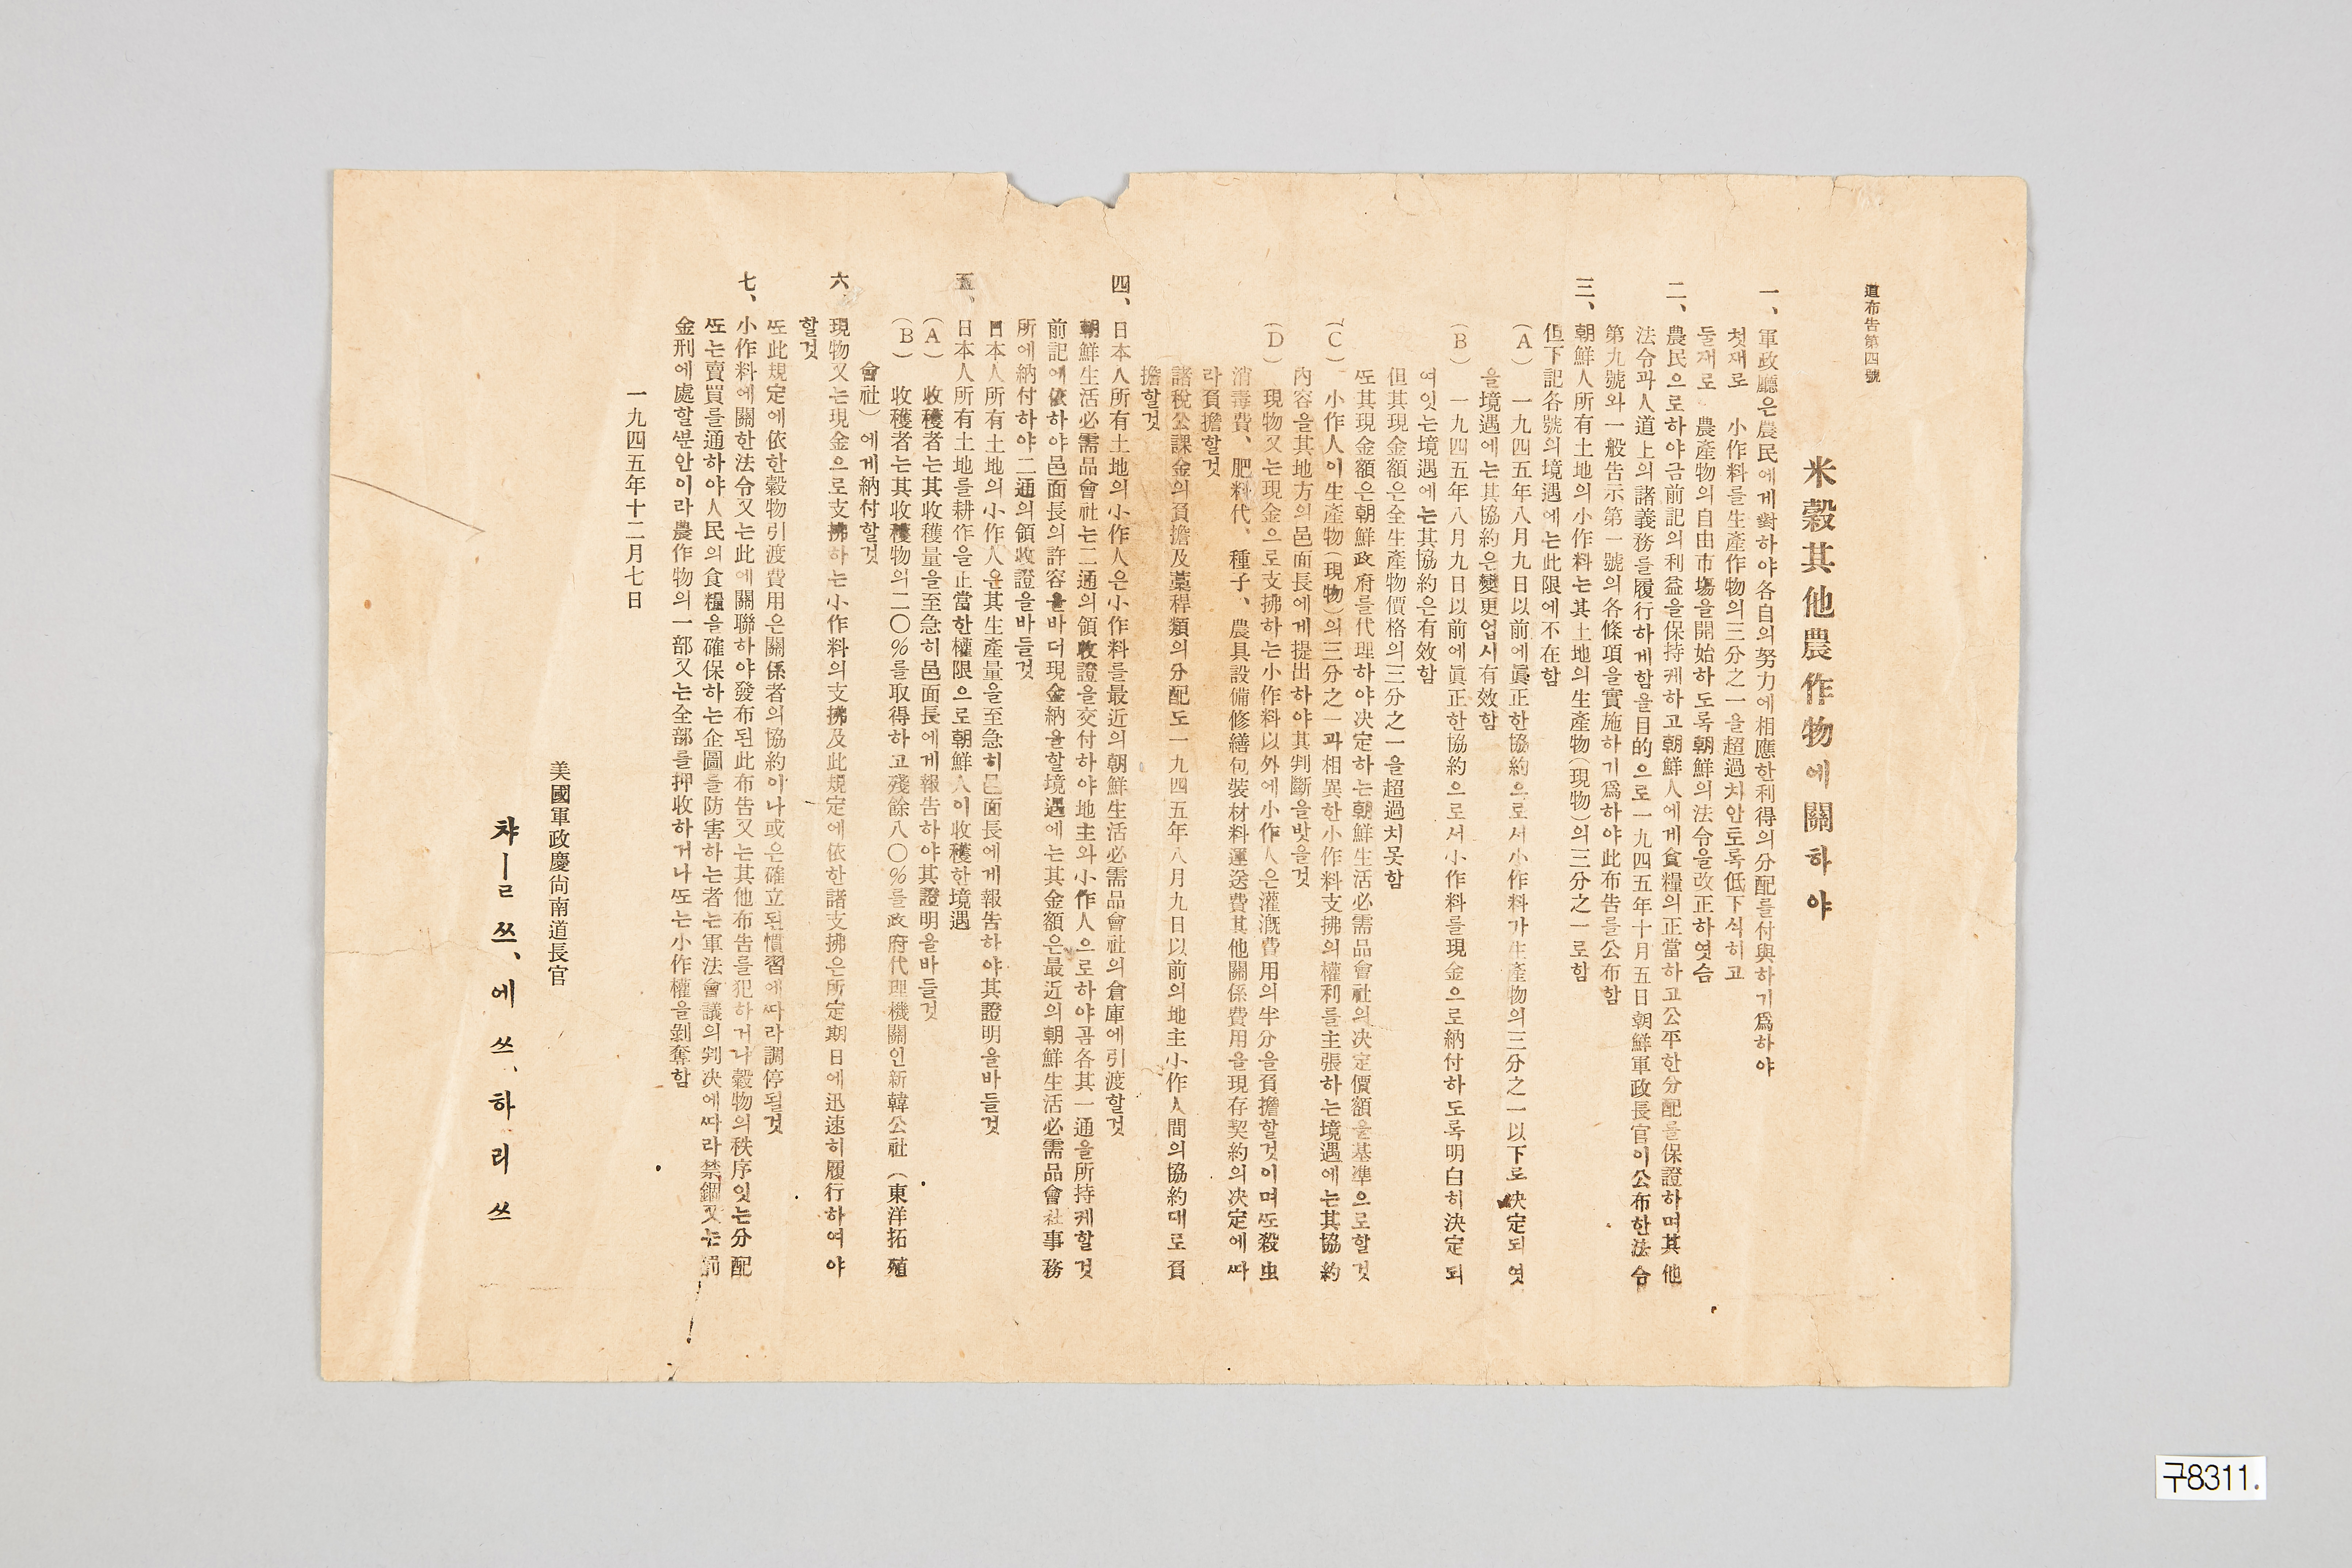 道布告第四號
米穀其他農作物에關하야
一、軍政廳은農民에게對하야各自의努力에相應한利得의分配를付與하기爲하야
첫재로 小作料를生產作物의三分之一을超過치안토록低下식히고
둘재로 農產物의自由市場을開始하도록朝鮮의法令을改正하엿슴
二、農民으로하야금前記의利益을保持케하고朝鮮人에게食糧의正當하고公平한分配를保證하며其他
法令과人道上의諸義務를履行하게함을目的으로一九四五年十月五日朝鮮軍政長官이公布한法令
第九號와一般告示第一號의各條項을實施하기爲하야此布告를公布함
三、朝鮮人所有土地의小作料는其土地의生產物(現物)의三分之一로함
但下記各號의境遇에는此限에不在함
(A) 一九四五年八月九日以前에眞正한協約으로서小作料가生產物의三分之一以下로決定되엿
을境遇에는其協約은變更업시有效함
(B) 一九四五年八月九日以前에眞正한協約으로서小作料를現金으로納付하도록明白히決定되
여잇는境遇에는其協約은有效함
但其現金額은全生產物價格의三分之一을超過치못함
ᄯᅩ其現金額은朝鮮政府를代理하야決定하는朝鮮生活必需品會社의決定價額을基準으로할것
(C) 小作人이生產物(現物)의三分之一과相異한小作料支拂의權利를主張하는境遇에는其協約
內容을其地方의邑面長에게提出하야其判斷을밧을것
(D) 現物又는現金으로支拂하는小作料以外에小作人은灌漑費用의半分을負擔할것이며ᄯᅩ殺虫
消毒費、肥料代、種子、農具設備修繕包裝材料運送費其他關係費用을現存契約의決定에ᄯᅡ
라負擔할것
諸稅公課金의負擔及藁稈類의分配도一九四五年八月九日以前의地主小作人間의協約대로負
擔할것
四、日本人所有土地의小作人은小作料를最近의朝鮮生活必需品會社의倉庫에引渡할것
朝鮮生活必需品會社는二通의領收證을交付하야地主와小作人으로하야곰各其一通을所持케할것
前記에依하야邑面長의許容을바더現金納을할境遇에는其金額은最近의朝鮮生活必需品會社事務
所에納付하야二通의領收證을바들것
日本人所有土地의小作人은其生產量을至急히邑面長에게報告하야其證明을바들것
五、日本人所有土地를耕作을正當한權限으로朝鮮人이收穫한境遇
(A) 收穫者는其收穫量을至急히邑面長에게報告하야其證明을바들것
(B) 收穫者는其收穫物의二〇%를取得하고殘餘八〇%를政府代理機關인新韓公社(東洋拓殖
會社)에게納付할것
六、現物又는現金으로支拂하는小作料의支拂及此規定에依한諸支拂은所定期日에迅速히履行하여야
할것
ᄯᅩ此規定에依한穀物引渡費用은關係者의協約이나或은確立된慣習에ᄯᅡ라調停될것
七、小作料에關한法令又는此에關聯하야發布된此布告又는其他布告를犯하거나穀物의秩序잇는分配
ᄯᅩ는賣買를通하야人民의食糧을確保하는企圖를防害하는者는軍法會議의判決에ᄯᅡ라禁錮又는罰
金刑에處할ᄲᅮᆫ안이라農作物의一部又는全部를押收하거나ᄯᅩ는小作權을剝奪함
一九四五年十二月七日
美國軍政慶尙南道長官
챠ーㄹ쓰、에쓰、하리쓰
구8311.